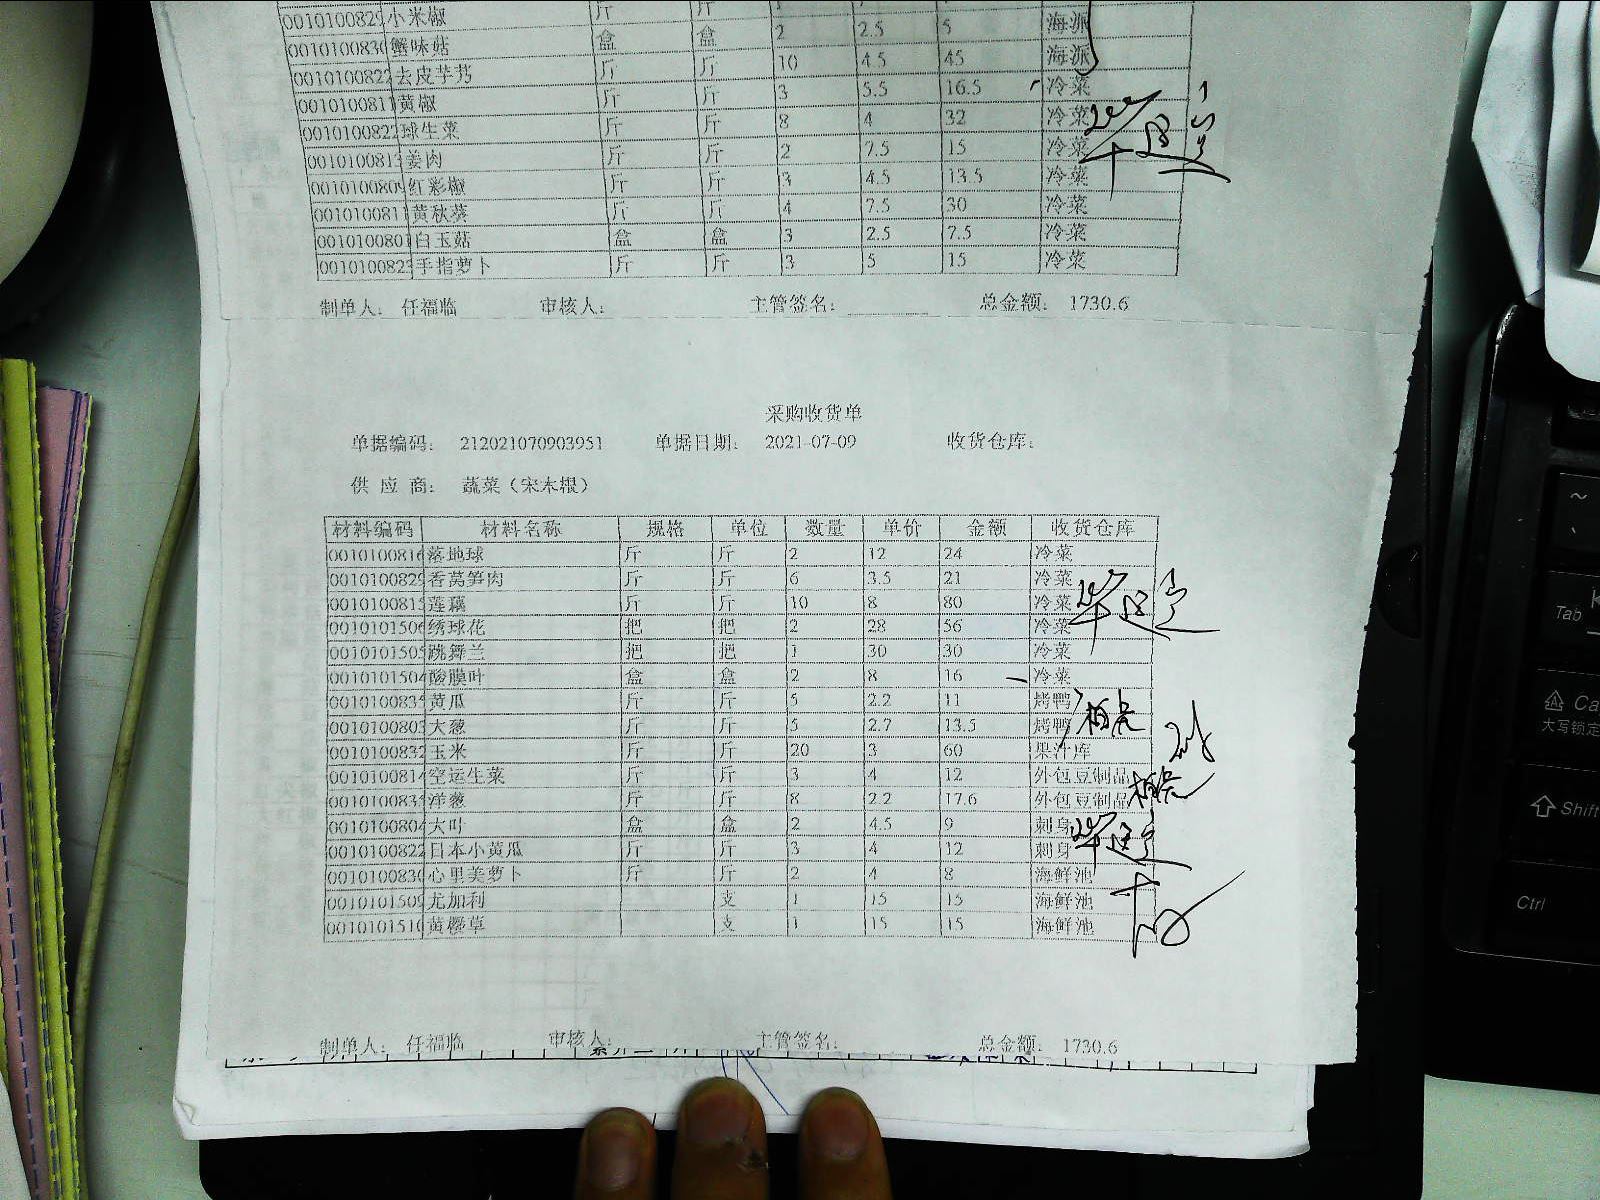 0010100829 小米椒 斤 斤 海派
0010100830 蟹味菇 盒 盒 2 2.5 5 海派
0010100822 去皮芋艿 斤 斤 10 4.5 45 海派
0010100811 黄椒 斤 斤 3 5.5 16.5 冷菜
0010100822 球生菜 斤 斤 8 4 32 冷菜
0010100813 姜肉 斤 斤 2 7.5 15 冷菜
0010100809 红彩椒 斤 斤 3 4.5 13.5 冷菜
0010100811 黄秋葵 斤 斤 4 7.5 30 冷菜
0010100801 白玉菇 盒 盒 3 2.5 7.5 冷菜
0010100823 手指萝卜 斤 斤 3 5 15 冷菜
制单人: 任福临 审核人: 主管签名: 总金额: 1730.6
采购收货单
单据编码: 212021070903951 单据日期: 2021-07-09 收货仓库:
供 应 商: 蔬菜（宋木根）
材料编码 材料名称 规格 单位 数量 单价 金额 收货仓库
0010100816 落地球 斤 斤 2 12 24 冷菜
0010100829 香莴笋肉 斤 斤 6 3.5 21 冷菜
0010100815 莲藕 斤 斤 10 8 80 冷菜
0010101506 绣球花 把 把 2 28 56 冷菜
0010101505 跳舞兰 把 把 1 30 30 冷菜
0010101504 酸膜叶 盒 盒 2 8 16 冷菜
0010100835 黄瓜 斤 斤 5 2.2 11 烤鸭
0010100803 大葱 斤 斤 5 2.7 13.5 烤鸭
0010100832 玉米 斤 斤 20 3 60 果汁库
0010100814 空运生菜 斤 斤 3 4 12 外包豆制品
0010100834 洋葱 斤 斤 8 2.2 17.6 外包豆制品
0010100804 大叶 盒 盒 2 4.5 9 刺身
0010100822 日本小黄瓜 斤 斤 3 4 12 刺身
0010100830 心里美萝卜 斤 斤 2 4 8 海鲜池
0010101509 尤加利 支 1 15 15 海鲜池
0010101510 黄樱草 支 1 15 15 海鲜池
制单人: 任福临 审核人: 主管签名: 总金额: 1730.6
~
Tab
大写锁定
Shift
Ctrl